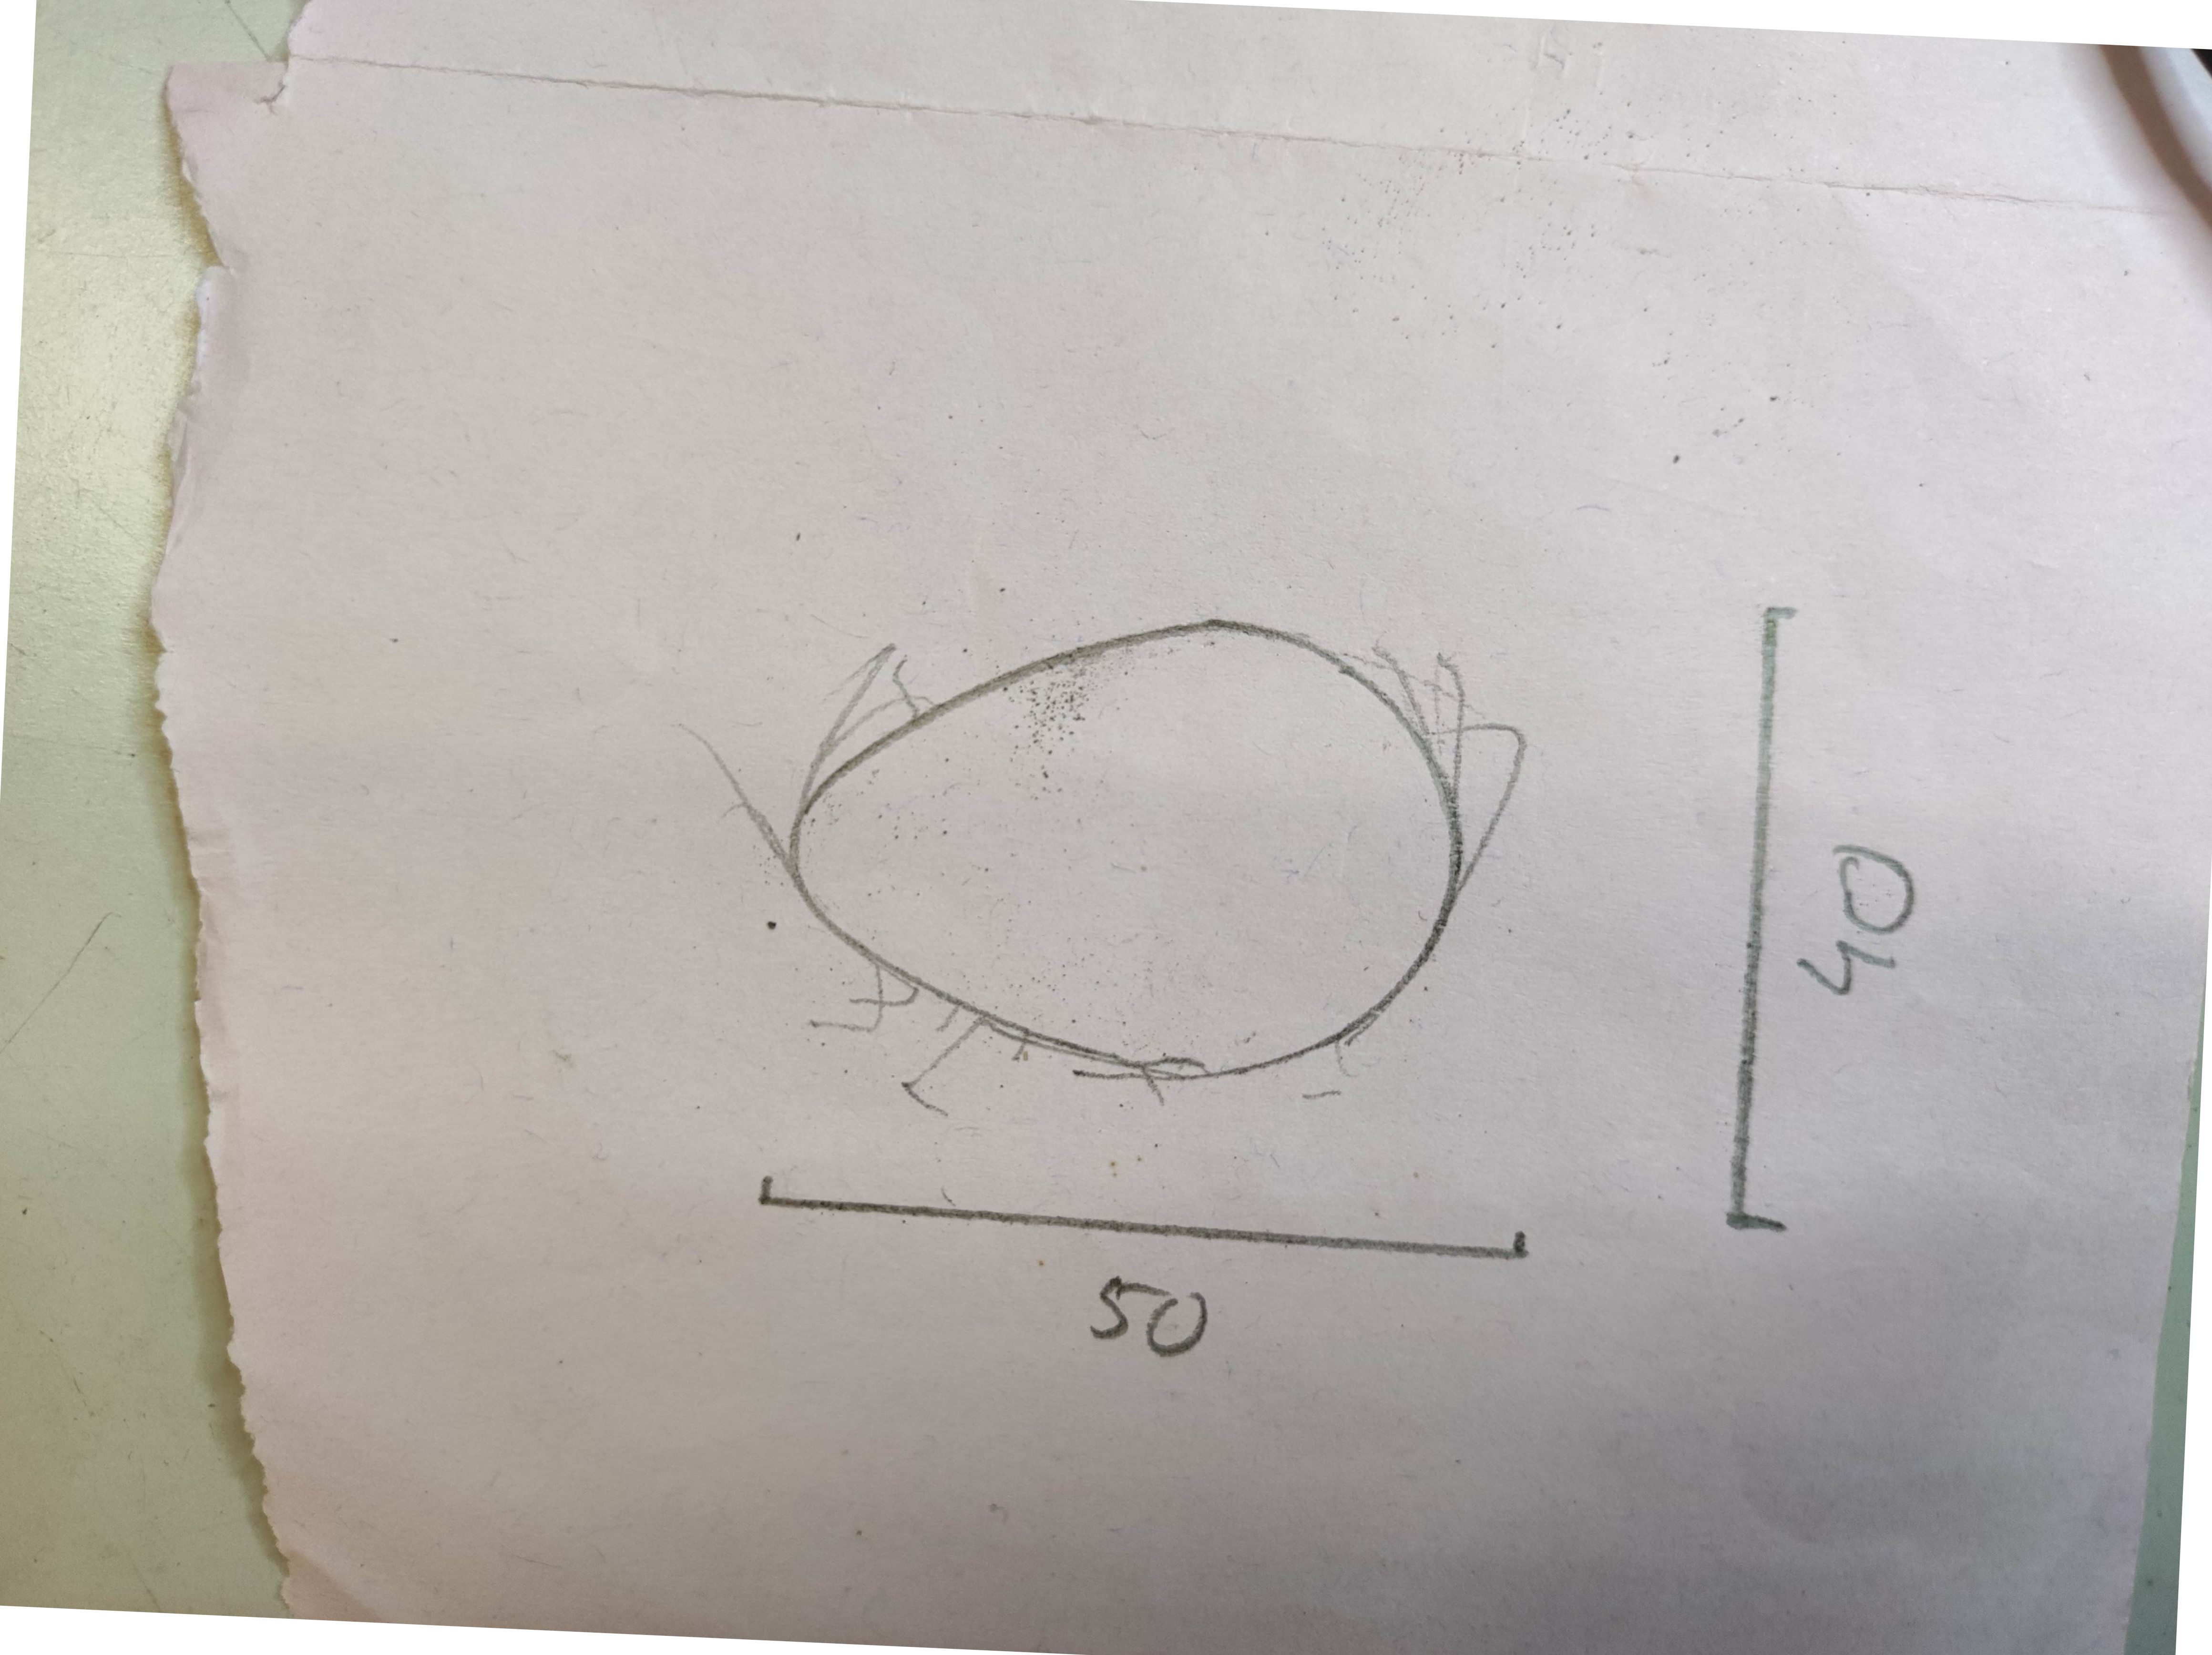 40
50